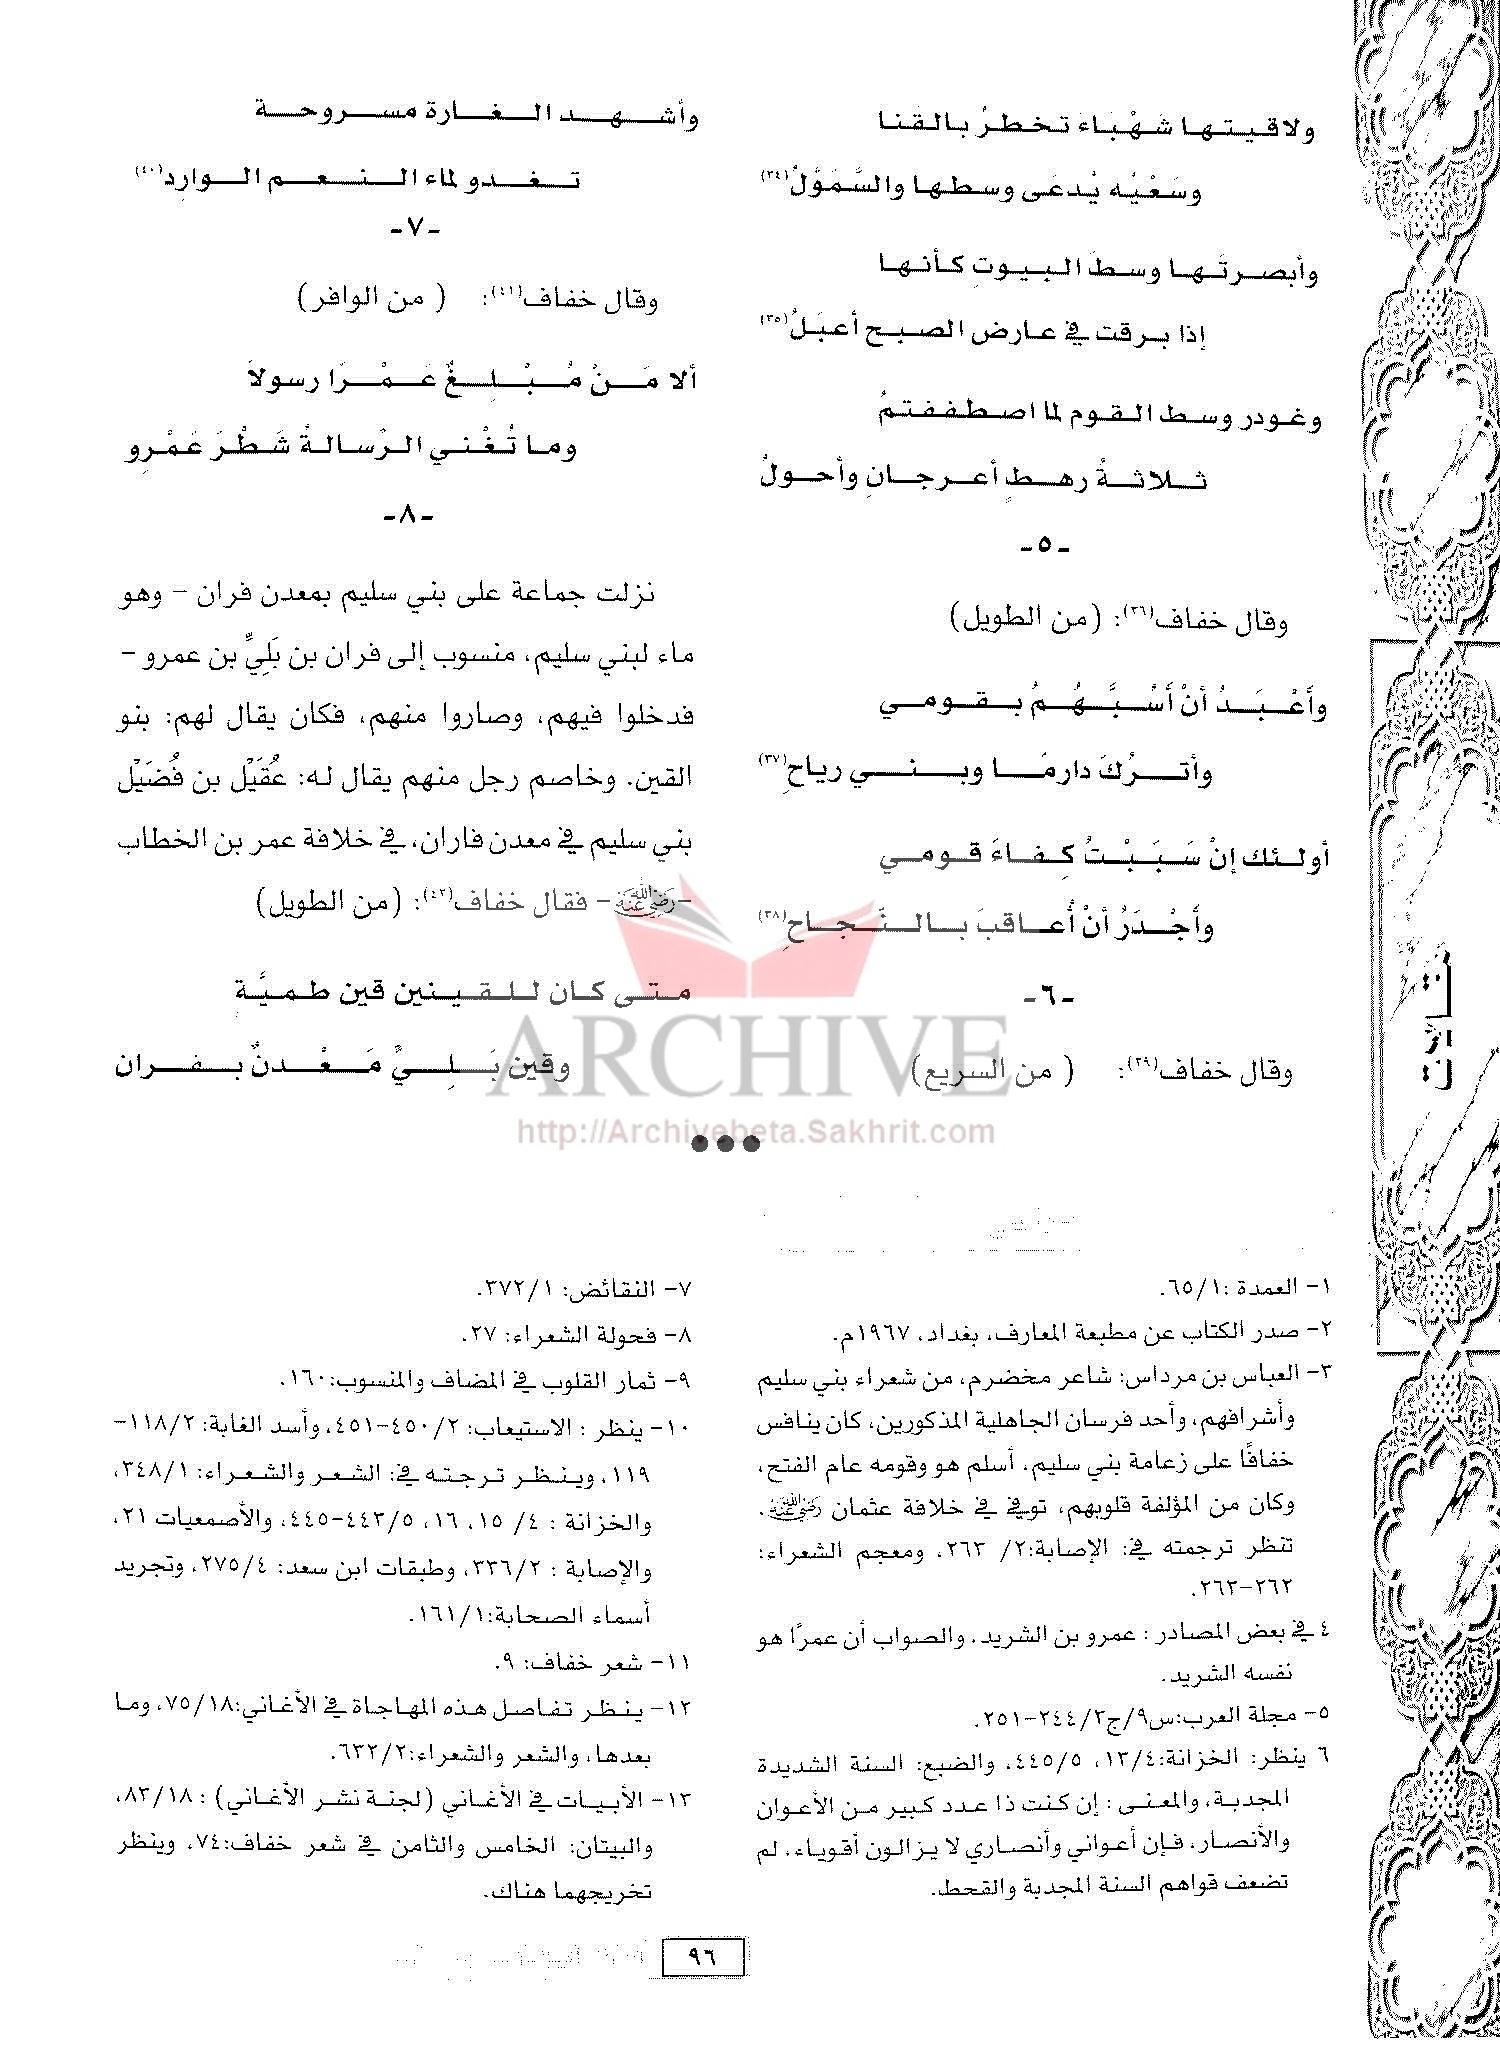 ولاقيتها شَهْباءَ تخطرُ بالقنا
وسَعْيُه يُدعَى وسطها والسَّمَوْلُ(٣٤)
وأبصرتَها وسطَ البيوتِ كأنها
إذا برقت في عارض الصبح أعبَلُ(٣٥)
وغودر وسط القوم لما اصطففتمُ
ثلاثةُ رهطٍ أعرجانِ وأحولُ
-٥-
وقال خفاف(٣٦): (من الطويل)
وأَعْبَدُ أنْ أَسُبَّهُمُ بقومي
وأتركَ دارمًا وبني رياحِ(٣٧)
أولئك إنْ سَبَبْتُ كِفاءَ قومي
وأَجْدَرُ أنْ أُعاقبَ بالنَّجاحِ(٣٨)
-٦-
وقال خفاف(٣٩): ( من السريع)
وأشهد الغارة مسروحة
تغدو لماء النعم الواردِ(٤٠)
-٧-
وقال خفاف(٤١): ( من الوافر)
ألا مَنْ مُبْلِغٌ عَمْرًا رسولاً
وما تُغْني الرِّسالةُ شَطْرَ عَمْرِو
-٨-
نزلت جماعة على بني سليم بمعدن فران – وهو
ماء لبني سليم، منسوب إلى فران بن بَلِيِّ بن عمرو –
فدخلوا فيهم، وصاروا منهم، فكان يقال لهم: بنو
القين. وخاصم رجل منهم يقال له: عُقَيْل بن فُضَيْل
بني سليم في معدن فاران، في خلافة عمر بن الخطاب
-رضي الله عنه- فقال خفاف(٤٢): (من الطويل)
متى كان للقينين قين طميَّة
وقين بَلِيٍّ مَعْدنٌ بفران
ARCHIVE
http://Archivebeta.Sakhrit.com
١- العمدة :٦٥/١.
٢- صدر الكتاب عن مطبعة المعارف، بغداد، ١٩٦٧م.
٣- العباس بن مرداس: شاعر مخضرم، من شعراء بني سليم
وأشرافهم، وأحد فرسان الجاهلية المذكورين، كان ينافس
خفافًا على زعامة بني سليم، أسلم هو وقومه عام الفتح،
وكان من المؤلفة قلوبهم، توفي في خلافة عثمان رضي الله عنه.
تنظر ترجمته في: الإصابة:٢/ ٢٦٣، ومعجم الشعراء:
٢٦٢-٢٦٣.
٤ في بعض المصادر : عمرو بن الشريد، والصواب أن عمرًا هو
نفسه الشريد.
٥- مجلة العرب:س٩/ج٣/٢٤٤-٢٥١.
٦ ينظر: الخزانة:١٣/٤، ٤٤٥/٥، والضبع: السنة الشديدة
المجدبة، والمعنى : إن كنت ذا عدد كبير من الأعوان
والأنصار، فإن أعواني وأنصاري لا يزالون أقوياء، لم
تضعف قواهم السنة المجدبة والقحط.
٧- النقائض: ٣٧٢/١.
٨- فحولة الشعراء: ٢٧.
٩- ثمار القلوب في المضاف والمنسوب:١٦٠.
١٠- ينظر : الاستيعاب: ٤٥٠/٢-٤٥١، وأسد الغابة: ١١٨/٢-
١١٩، وينظر ترجته في: الشعر والشعراء: ٣٤٨/١،
والخزانة : ٤/ ١٥، ١٦، ٤٤٣/٥-٤٤٥، والأصمعيات ٢١،
والإصابة : ٣٣٦/٢، وطبقات ابن سعد: ٢٧٥/٤، وتجريد
أسماء الصحابة:١٦١/١.
١١- شعر خفاف: ٩.
١٢- ينظر تفاصل هذه المهاجاة في الأغاني:٧٥/١٨، وما
بعدها، والشعر والشعراء:٦٣٢/٢.
١٣- الأبيات في الأغاني (لجنة نشر الأغاني) : ٨٣/١٨،
والبيتان: الخامس والثامن في شعر خفاف:٧٤، وينظر
تخريجهما هناك.
٩٦